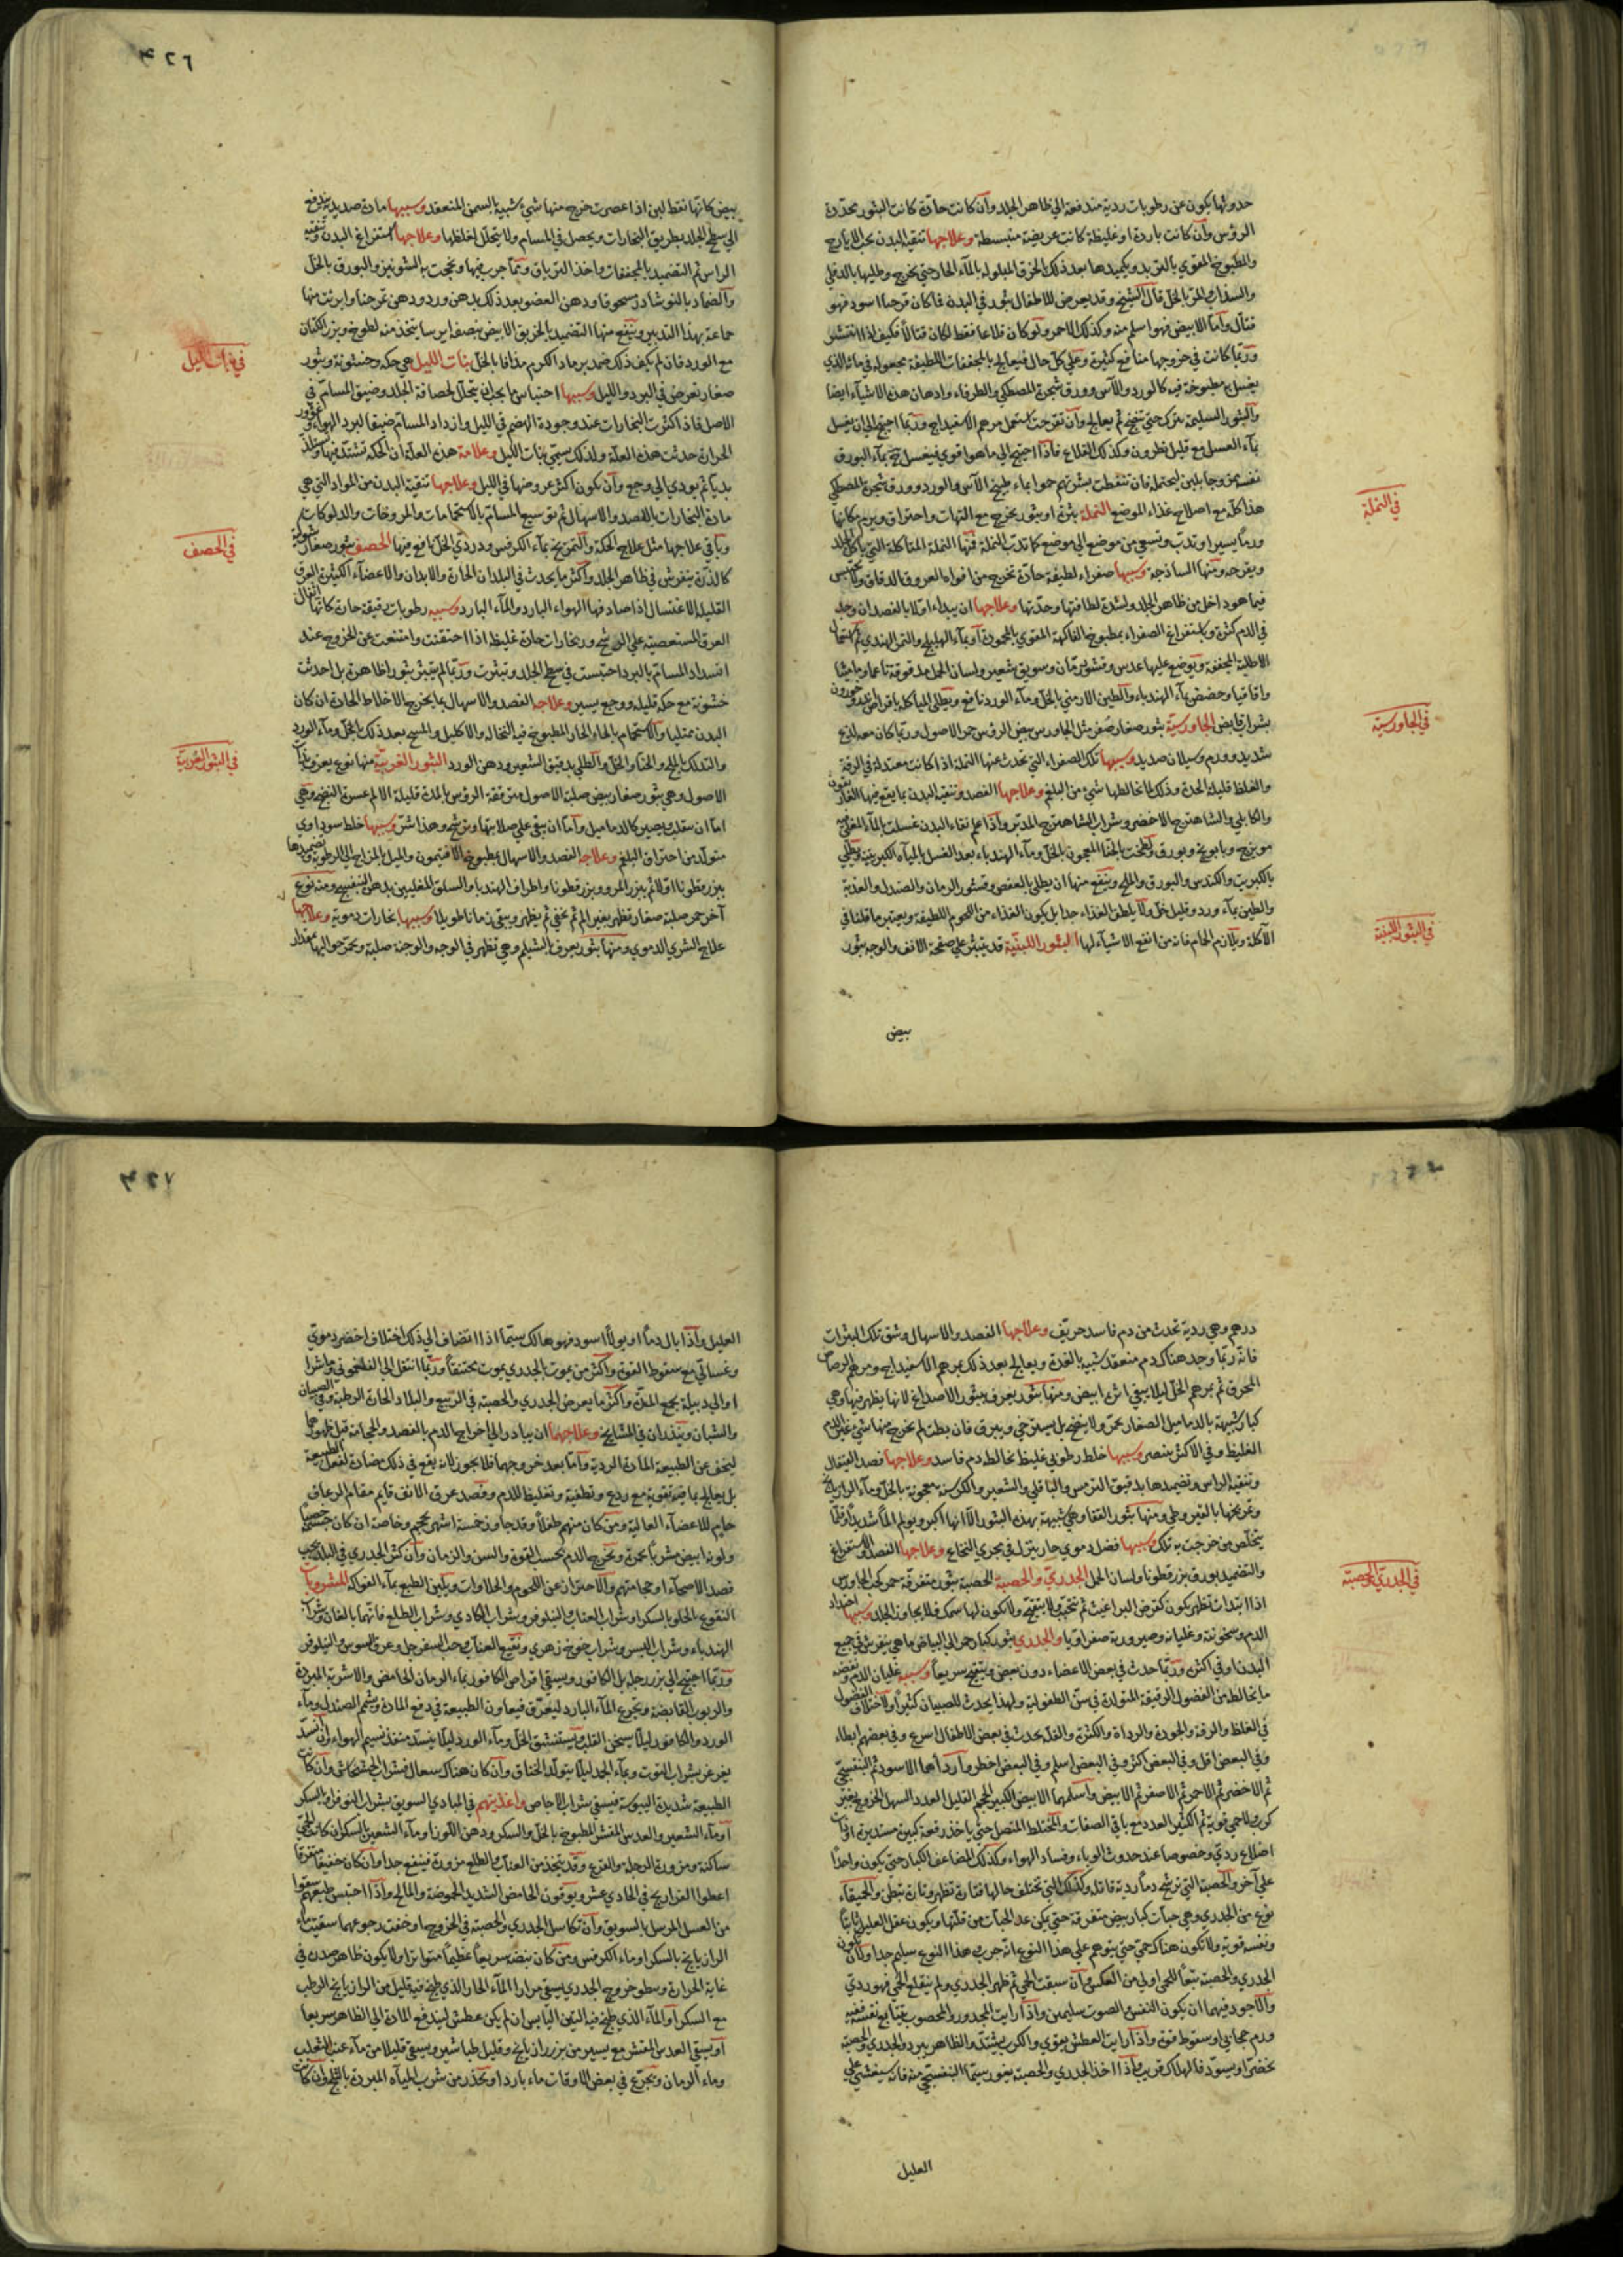 حدوثها يكون عن رطوبات ردية مندفعة الي ظاهر الجلد وان كانت حادة كانت البثور محددة
الرؤس وان كانت باردة او غليظة كانت عريضة منبسطة وعلاجها تنقية البدن بحب الايارج
والمطبوخ المقوي بالتربد وتكميدها بعد ذلك بالخرق المبلولة بالمآء الحار حتي تخرج وطليها بالدفلي
والسذاب والمر بالخل قال الشيخ وقد يعرض للاطفال بثور في البدن فما كان قرحيا اسود فهو
قتال واما الابيض فهو اسلم منه وكذلك الاحمر ولو كان قلاعا فقط لكان قتالا فكيف اذا انتشر
وربما كانت في خروجها منافع كثيرة وعلي كل حال فيعالج بالمجففات اللطيفة مجعولة في مائه الذي
يغسل به مطبوخة فيه كالورد والآس وورق شجرة المصطكي والطرفاء وادهان هذه الاشيآء ايضا
والبثور السليمة تترك حتي تنضج ثم يعالج وان تقرحت استعمل مرهم الاسفيداج وربما احتيج الي ان تغسل
بمآء العسل مع قليل نطرون وكذلك القلاع فاذا احتيج الي ما هو اقوي فيغسل بمآء البورق
نفسه ممزوجا بلبن ليحتمله فان تنفطت بشرتهم حموا بماء طبيخ الآس والورد وورق شجرة المصطكي
هذا كله مع اصلاح غذاء الموضع النملة بثرة او بثور تخرج مع التهاب واحتراق ويرم مكانها
في النملة
ورما يسيرا وتدب وتسعي من موضع الي موضع كما تدب النملة فمنها النملة المتاكلة التي تاكل الجلد
ويقرحه ومنها الساذجة وسببها صفراء لطيفة حادة تخرج من افواه العروق الدقاق ولا تحتبس
فيما هو داخل من ظاهر الجلد ولشدة لطافتها وحدتها وعلاجها ان يبداء اولا بالفصد ان وجد
في الدم كثرة وباستفراغ الصفراء بمطبوخ الفاكهة المقوي بالمحمودة او بمآء الهليلج والتمر الهندي ثم استعمال
الاطلية المجففة ويوضع عليها عدس وقشور رمان وسويق شعير ولسان الحمل مدقوقة ناعما وماميثا
واقاقيا وحضض بمآء الهندباء والطين الارمني بالخل ومآء الورد نافع ويطلي المتاكلة باقراص اندروخورون
بشراب قابض الجاورسية بثور صغار صفر مثل الجاورس بيض الرؤس حمر الاصول وربما كان معه لذع
في الجاورسية
شديد وورم وسيلان صديد وسببها تلك الصفراء التي تحدث عنها النملة اذا كانت معتدلة في الرقة
والغلظ قليلة الحدة وذلك لما يخالطها شئ من البلغم وعلاجها الفصد وتنقية البدن بما يقع فيها الغاريقون
والكابلي والشاهترج الاخضر وشراب الشاهترج المدبر واذا علم نقاء البدن غسلت بالمآء المغلي فيه
مويزج وبابونج وبورق ولطخت بالحنا المعجون بالخل ومآء الهندباء بعد الغسل بالمياه الكبريتية وتطلي
بالكبريت والكندس والبورق والملح وينفع منها ان يطلي بالعفص وقشور الرمان والصندل والعذبة
والطين بمآء ورد وقليل خل ولا يلطف الغذاء جدا بل يكون الغذاء من اللحوم اللطيفة ويعتبر ما قلنا في
الآكلة ويلازم الحمام فانه من انفع الاشيآء لها البثور اللبنية قد يتبثر علي صفحة الانف والوجه بثور
في البثور اللبنية
بيض
٤٢٦
بيض كانها نقط لبن اذا عصرت خرج منها شئ شبيه بالسمن المنعقد وسببها مادة صديدية تندفع
الي سطح الجلد بطريق البخارات ويحصل في المسام ولا يتحلل لغلظها وعلاجها استفراغ البدن وتنقية
الراس ثم التضميد بالمجففات واخذ الترياق ومما جرب فيها ونجحت به الشونيز والبورق بالخل
والضماد بالنوشادر مسحوقا ودهن العضو بعد ذلك بدهن ورد ودهن تمرحنا وابرئت منها
جماعة بهذا التدبير وينفع منها التضميد بالخربق الابيض بنصف ايرسا يتخذ منه لطوخ وبزر الكتان
مع الورد فان لم يكف ذلك ضمد برماد الكرم مذافا بالخل بنات الليل هي حكة وخشونة وبثور
في بنات الليل
صغار تعرض في البرد والليل وسببها احتباس ما يجب ان يتحلل لحصافة الجلد وضيق المسام في
الاصل فاذ اكثرت البخارات عند وجودة الهضم في الليل وازداد المسام ضيقا لبرد الهواء وغؤور
الحرارة حدثت هذه العلة ولذلك سمي بنات الليل وعلامة هذه العلة ان الحكة تشتد فيها وتلذ
بديا ثم يودي الي وجع وان يكون اكثر عروضها في الليل وعلاجها تنقية البدن من المواد التي هي
مادة البخارات بالفصد والاسهال ثم توسيع المسام بالاستحمامات والمروخات والدلوكات
وباقي علاجها مثل علاج الحكة والتمريخ بمآء الكرفس ودردي الخل نافع فيها الحصف بثور صغار شوكية
في الحصف
كالذرة ينفرش في ظاهر الجلد واكثر ما يحدث في البلدان الحارة والابدان والاعضآء الكثيرة العرق
القليلة الاغتسال اذا صادفها الهواء البارد والمآء البارد وسببه رطوبات رقيقة حادة كانها اثفال
العرق المستعصية علي الرشح وبخارات حادة غليظة اذا احتقنت وامتنعت عن الخروج عند
انسداد المسام بالبرد احتبست في سطح الجلد وتبثرت وربما لم يتبثر بثورا ظاهرة بل احدثت
خشونة مع حكة قليلة ووجع يسير وعلاجه الفصد والاسهال بما يخرج الاخلاط الحادة ان كان
البدن ممتليا والاستحمام بالماء الحار المطبوخ فيه النخالة والاكليل والمسح بعد ذلك بالخل ومآء الورد
والتدلك بالملح والحنا والخل والطلي بدقيق الشعير ودهن الورد البثور الغريبة منها نوع يعرف
في البثور الغريبة
الاصول وهي بثور صغار بيض صلبة الاصول متزققة الرؤس بالمدة قليلة الالم عسرة النضج وهي
اما ان يتقلب ويصير كالدماميل واما ان يبقي علي صلابتها وترشح وهذا شر وسببها خلط سوداوي
متولد من احتراق البلغم وعلاجه الفصد والاسهال بمطبوخ الافتيمون والميل بالمزاج الي الرطوبة وتضميدها
ببزرقطونا اولا ثم ببزر المرو وبزرقطونا واطراف الهندبا والسلق المغليين بدهن البنفسج ومنه نوع
آخر حمر صلبة صغار تظهر بغير الم ثم تخفي ثم يظهر ويبقي زمانا طويلا وسببها بخارات دموية وعلاجها
علاج الشري الدموي ومنها بثور يعرف بالشيلم وهي تظهر في الوجه والوجنة صلبة ويحمر حواليها بمقدار
درهم وهي ردية تحدث من دم فاسد حريف وعلاجها الفصد والاسهال وشق تلك البثرات
فانه ربما وجد هناك دم منعقد شبيه بالغدة ويعالج بعد ذلك بمرهم الاسفيداج ومرهم الرصاص
المحرق ثم بمرهم الخل ليلا يبقي اثر ابيض ومنها بثور يعرف ببثور الاصداغ لانها يظهر فيها وهي
كبار شبيهة بالدماميل الصغار بحمرة ولا ينضج بل يسترخي ويبري فان بطت لم يخرج منها شئ غير الدم
الغليظ وفي الاكثر ينصر وسببها خلط رطوبي غليظ يخالطه دم فاسد وعلاجها فصد القيفال
وتنقية الراس وتضميدها بدقيق الترمس والباقلي والشعير والكرسنة معجونة بالخل ومآء الرازيانج
وتمريخها بالقيروطي ومنها بثور القفا وهي شبيهة بهذه البثور الا انها اكبر ويولم الما شديدا وقلما
يتخلص من خرجت به تلك وسببها فضل دموي حار ينزل في مجري النخاع وعلاجها الفصد والاستفراغ
والتضميد بورق بزرقطونا ولسان الحمل الجدري والحصبة الحصبة بثور متفرقة حمر كحب الجاورس
في الجدري والحصبة
اذا ابتدات تظهر يكون كقرص البراغيث ثم يتحبب ولا يتقيح ولا يكون لها سمك فلا يجاوز الجلد وسببها احتداد
الدم وسخونته وغليانه وصيرورته صفراويا والجدري بثور كبار حمر الي البياض ما هي ينفرش في جميع
البدن او في اكثره وربما حدث في بعض الاعضاء دون بعض ويتقيح سريعا وسببه غليان الدم ونفضه
ما يخالطه من الفضول الرقيقة المتولدة في سن الطفولية ولهذا يحدث للصبيان كثيرا ولاختلاف الفضول
في الغلظ والرقة والجودة والرداة والكثرة والقلة يحدث في بعض الاطفال اسرع وفي بعضهم ابطاء
وفي البعض اقل وفي البعض اكثر وفي البعض اسلم وفي البعض اخطر واردأهما الاسود ثم البنفسجي
ثم الاخضر ثم الاحمر ثم الاصفر ثم الابيض واسلمهما الابيض الكبير الحجم القليل العدد السهل الخروج بغير
كرب ولا حمي قوية ثم الكثير العدد مع باقي الصفات والمختلط المتصل حتي ياخذ رقعة كبيرة مستديرة او ذات
اضلاع ردي وخصوصا عند حدوث الوباء وفساد الهواء وكذلك المضاعف الكبار حتي يكون واحدا
علي آخر والحصبة التي ترشح دما ردية قاتلة وكذلك التي تختلف حالها فتارة تظهر وتارة تبطن والحميقاء
نوع من الجدري وهي حبات كبار بيض متفرقة حتي يمكن عد الحبات من قلتها ويكون عقل العليل ثابتا
ونفسه قوية ولا تكون هناك حمي حتي يتوهم علي هذا النوع انه جرب هذا النوع سليم جدا ولان يكون
الجدري والحصبة تبعا للحمي اولي من العكس وان سبقت الحمي ثم ظهر الجدري ولم يتقلع الحمي فهو ردي
والاجود فيهما ان يكون النفس والصوت سليمين واذا رايت المجدور والمحصوب يتتابع نفسه ففيه
ورم حجابي او سقوط قوة واذا رايت العطش يقوي والكرب يشتد والظاهر يبرد والجدري والحصبة
يخضر او يسود فالهلاك قريب واذا اخذ الجدري والحصبة يغور سيما البنفسجي منه فانه سيغشي علي
العليل
٤٢٧
العليل واذا بال دما او بولا اسود فهو هالك سيما اذا انضاف الي ذلك اختلاف اخضر دموي
وغسالي مع سقوط القوة واكثر من يموت بالجدري يموت مختنقا وربما انتقل الي الفلغموني وماشرا
او الي دبيلة يجمع المدة واكثر ما يعرض الجدري والحصبة في الربيع والبلاد الحارة الرطبة وفي الصبيان
والشبان وينذران في المشايخ وعلاجهما ان يبادر الي اخراج الدم بالفصد والحجامة قبل ظهورهما
ليخف عن الطبيعة المادة الردية واما بعد خروجهما فلا يجوز لانه يقع في ذلك مضادة لفعل الطبيعة
بل يعالج بما فيه تقوية مع ردع وتطفية وتغليظ للدم وفصد عرق الانف قايم مقام الرعاف
حام للاعضآء العالية ومن كان منهم طفلا وقد جاوز خمسة اشهر يحجم وخاصة ان كان خصبا
ولونه ابيض مشربا بحمرة ويخرج الدم بحسب القوة والسن والزمان وان كثر الجدري في البلد يجب
فصد الاصحآء او حجامتهم والاحتراز عن اللحوم والحلاوات وتليين الطبع بمآء الفواكه للمشروبات
النقوع المحلو بالسكر او شراب العناب والنيلوفر وشراب الكادي وشراب الطلع فانهما بالغان وشراب
الهندباء وشراب اليسر وشراب خوخ زهري ونقيع العناب وحب السفرجل وعرق السوس والنيلوفر
وربما احتيج الي بزر رجلة بل الكافور ويسقي اقراص الكافور بماء الرمان الحامض والاشربة المبردة
والربوب القابضة وتجرع المآء البارد ليعرق فيعاون الطبيعة في دفع المادة وشم الصندل ومآء
الورد والكافور ليلا يسخن القلب ويستنشق الخل ومآء الورد ليلا ينسد منفذ نسيم الهواء وان انسد
يغرغر بشراب التوت وبمآء الجمد ليلا يتولد الخناق وان كان هناك سعال فشراب الخشخاش وان كانت
الطبيعة شديدة اليبوسة فيسقي شراب الاجاص واغذيتهم في المبادي السويق بشراب النوفر او بالسكر
او مآء الشعير والعدس المقشر المطبوخ بالخل والسكر ودهن اللوز او مآء الشعير بالسكر ان كانت الحمي
ساكنة ومزورة الرجلة والقرع وقد يتخذ من العناب والطلع مزورة فينفع جدا وان كان خفيفا متفرقا
اعطوا الفراريج في الحادي عشر ويوقون الحامض الشديد الحموضة والمالح واذا احتبس طبعهم سقوا
من العسل المرسل بالسويق وان تكاسل الجدري والحصبة في الخروج او خفت رجوعهما سقيت مآء
الرازيانج بالسكر او ماء الكرفس ومن كان نبضه سريعا عظيما متواترا ولا يكون ظاهر صدره في
غاية الحرارة وبطو خروج الجدري يسقي مرارا المآء الحار الذي طبخ فيه قليل من الرازيانج الرطب
مع السكر او المآء الذي طبخ فيه التين اليابس ان لم يكن عطش ليندفع المادة الي الظاهر سريعا
او يسقي العدس المقشر مع يسير من بزر رازيانج وقليل طباشير ويسقي قليلا من مآء عنب الثعلب
وماء الرمان ويجرع في بعض الاوقات ماء باردا ويحذر من شرب المياه المبردة بالثلج وان كانت